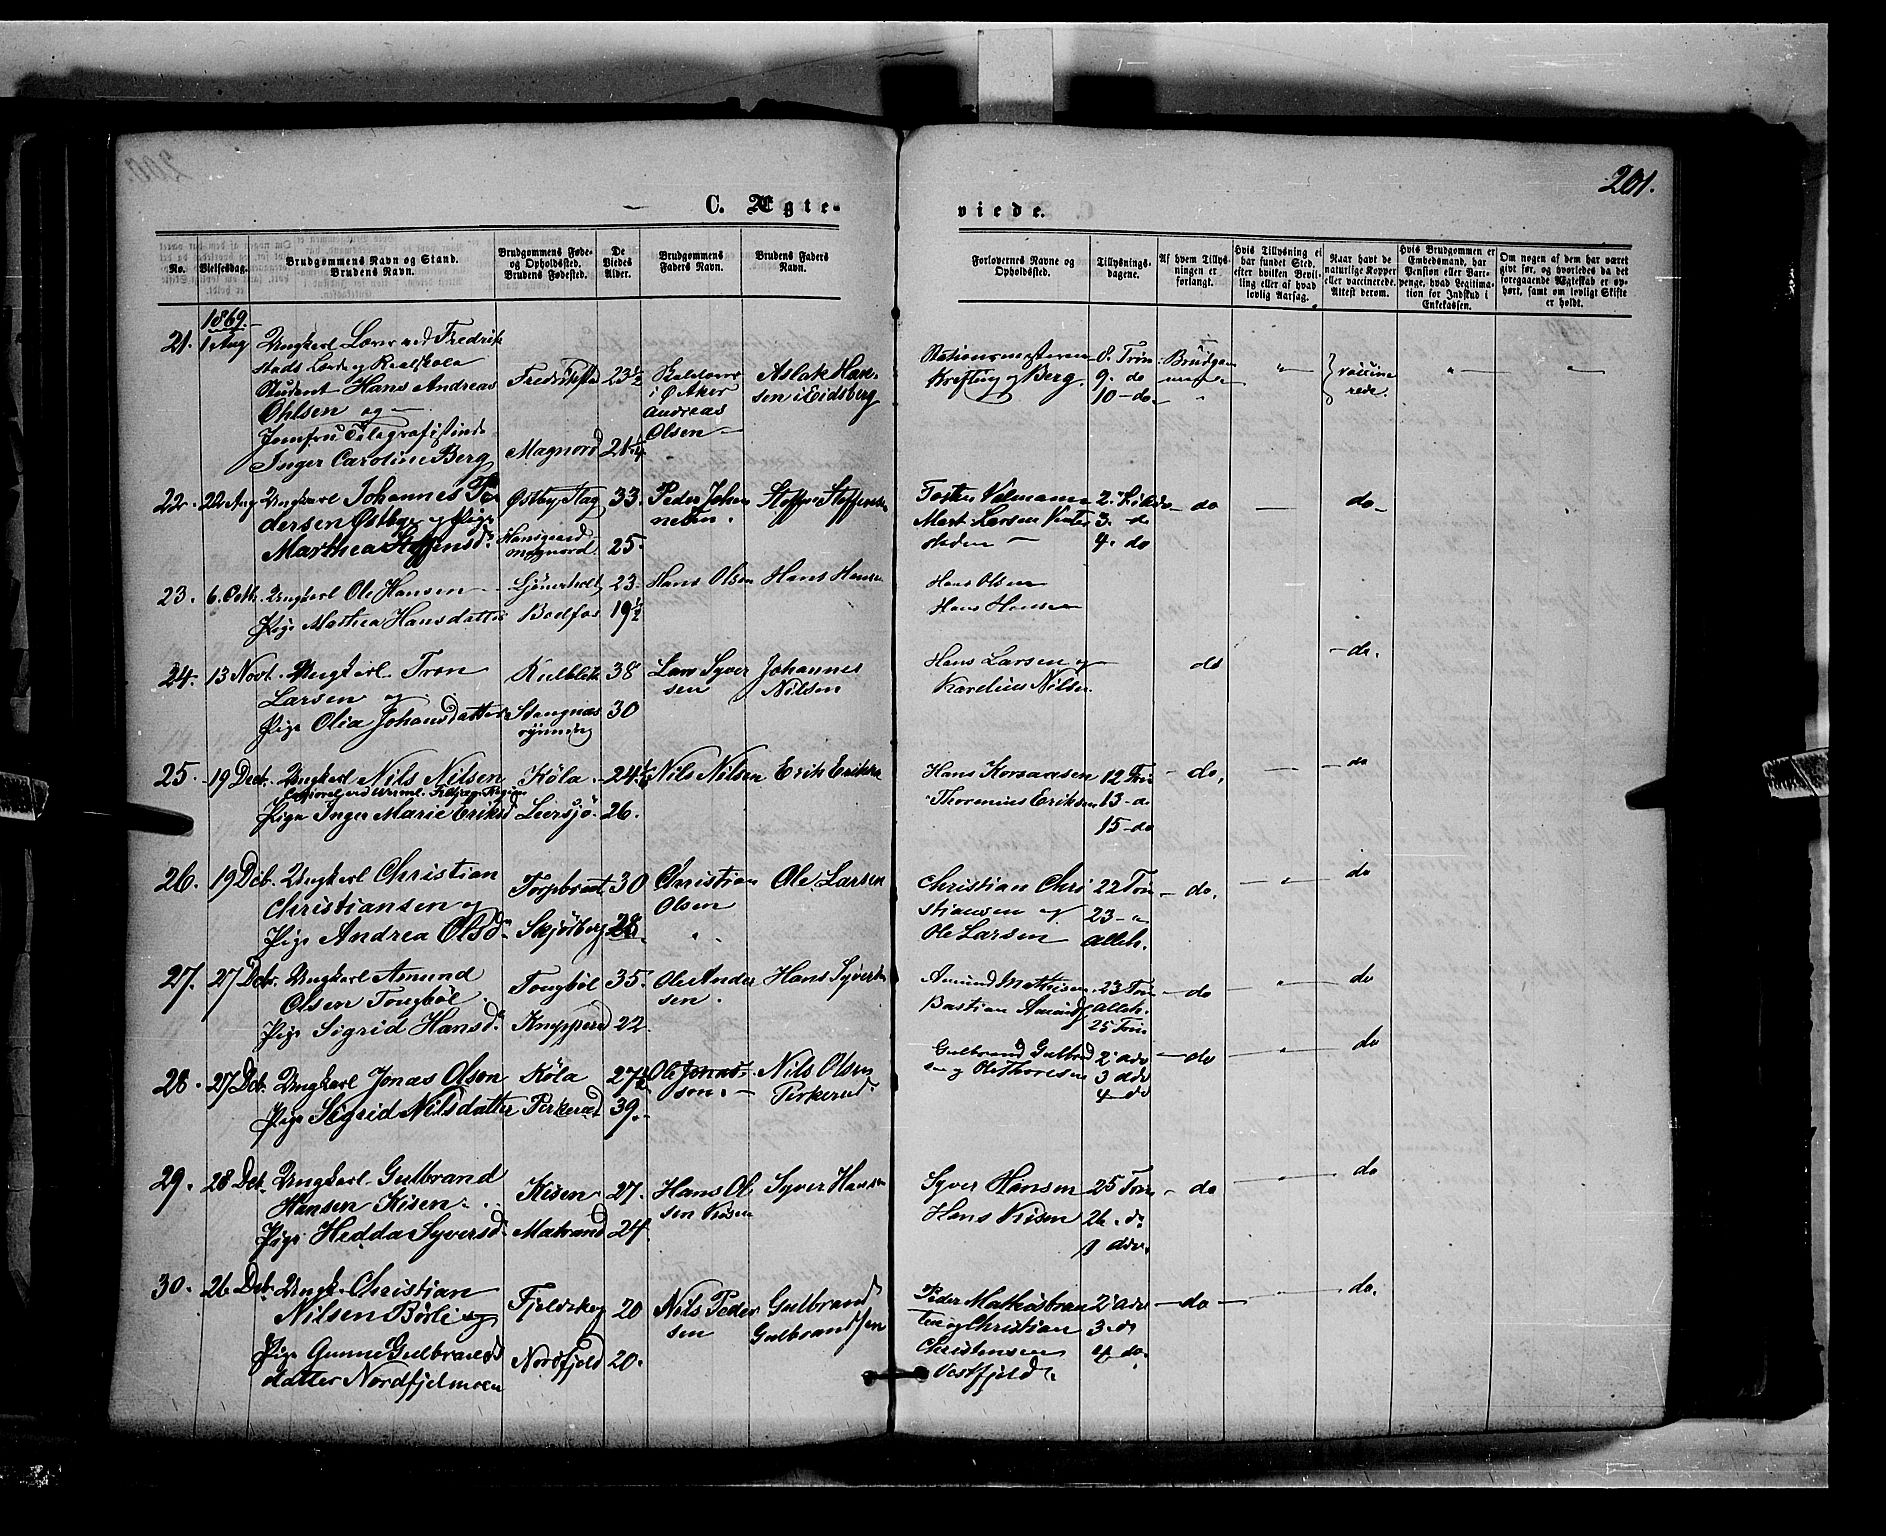 201.
C. Ægte-
viede.
No.
Vielsesdag.
Brudgommens Navn og Stand.
Brudens Navn.
Brudgommens Føde-
og Opholdssted.
Brudens Fødested.
De
Viedes
Alder.
Brudgommens
Faders Navn.
Brudens Faders
Navn.
Forlovernes Navne og
Opholdssted.
Tillysnings-
dagene.
Af hvem Tillys-
ningen er
forlangt.
Hvis Tillysning ei
har fundet Sted,
efter hvilken Bevil-
ling eller af hvad
lovlig Aarsag.
Naar havt de
naturlige Kopper
eller vaccinerede.
Attest derom.
Hvis Brudgommen er
Embedsmand, har
Pension eller Vart-
penge, hvad Legitima-
tion for Indskud i
Enkekassen.
Om nogen af dem har været
gift før, og hvorledes da det
foregaaende Ægteskab er op-
hørt, samt om lovligt Skifte
er holdt.
1869.
21. 1 Aug Ungkarl Lærer ved Fredrik
stads Lærde og Realskole
Student Hans Andreas Fredriksta 23½ i Aker Aslak Han-
sen i Eidsberg
Ohlsen og Andreas
Jomfru Telegrafistinde Olsen
Inger Caroline Berg Magnord 21¼
Stationsmesterne 8. Trin Brudgom
Krefting og Berg. 9. do vaccine
10 do rede.
22. 22 Aug Ungkarl Johannes Pe Østby Flag 33. Peder Johan Stoffer Stoffersen
dersen Østby og Pige nesen.
Marthea Stoffersd. magnord 25.
2.
Mart. Larsen 3. do do do
4. do
23. 6. Octb. Ungkarl Ole Hansen 23. Hans Olsen Hans Hansen
Pige Marthea Hansdatter Bodfos 19½
Hans Olsen
Hans Hansen
24. 13 Novb. Ungkarl Tron Kulblik 38 Lars Syver Johannes
Larsen og sen Nilsen
Pige Olia Johansdatter Stangnæs 30
rydning
Hans Larsen og do do.
Karelius Nilsen
25. 19 Decb. Ungkarl Nils Nilsen Köla 24½ Nils Nilsen Erik Eriksen
Pige Inger Marie Eriksd. Leersjø 26.
Hans Korsarsen 12 Trin do. do
Thorenius Eriksen 13 do
15 do
26. 19 Dcb. Ungkarl Christian Torpbraat 30 Christian Ole Larsen
Christiansen og Olsen
Pige Andrea Olsd. Skjødberg 28.
Christian Chri 22 Trin do. do
stiansen og 23 "
Ole Larsen alleh.
27. 27 Dcb. Ungkarl Amund Tongböl 35. Ole Ander Hans Syversen
Olsen Tongböl sen.
Pige Sigrid Hansd. Knapperud 22.
Amund Mathisen 23 Trin do do
Bastian Amunds alleh.
25 Trin
28. 27 Dcb. Ungkarl Jonas Olson Köla 27½ Ole Jonas Nils Olsen
Olson. Pirkerud.
Pige Sigrid Nilsdatter Pirkerud 39.
Gulbrand Gulbrand 2 adv do do
sen og Ole Thoresen 3 adv
4 do
29. 28 Dcb. Ungkarl Gulbrand Kisen 27. Hans Ol Syver Hansen
Hansen Kisen. sen Kisen
Pige Hedda Syversd. Matrand 24.
Syver Hansen 25 Trin do do
Hans Kisen 26. do
1 adv.
30. 26 Dcb. Ungk. Christian Fjeldskog 20 Nils Peder Gulbrand
Nilsen Børli og sen Gulbrandsen
Pige Gunne Gulbrands Nordfjeld 20.
datter Nordfjelmoen
Peder Mathisbraa 2 adv do do.
ten og Christian 3. do
Christensen 4 do.
Vestfjeld.